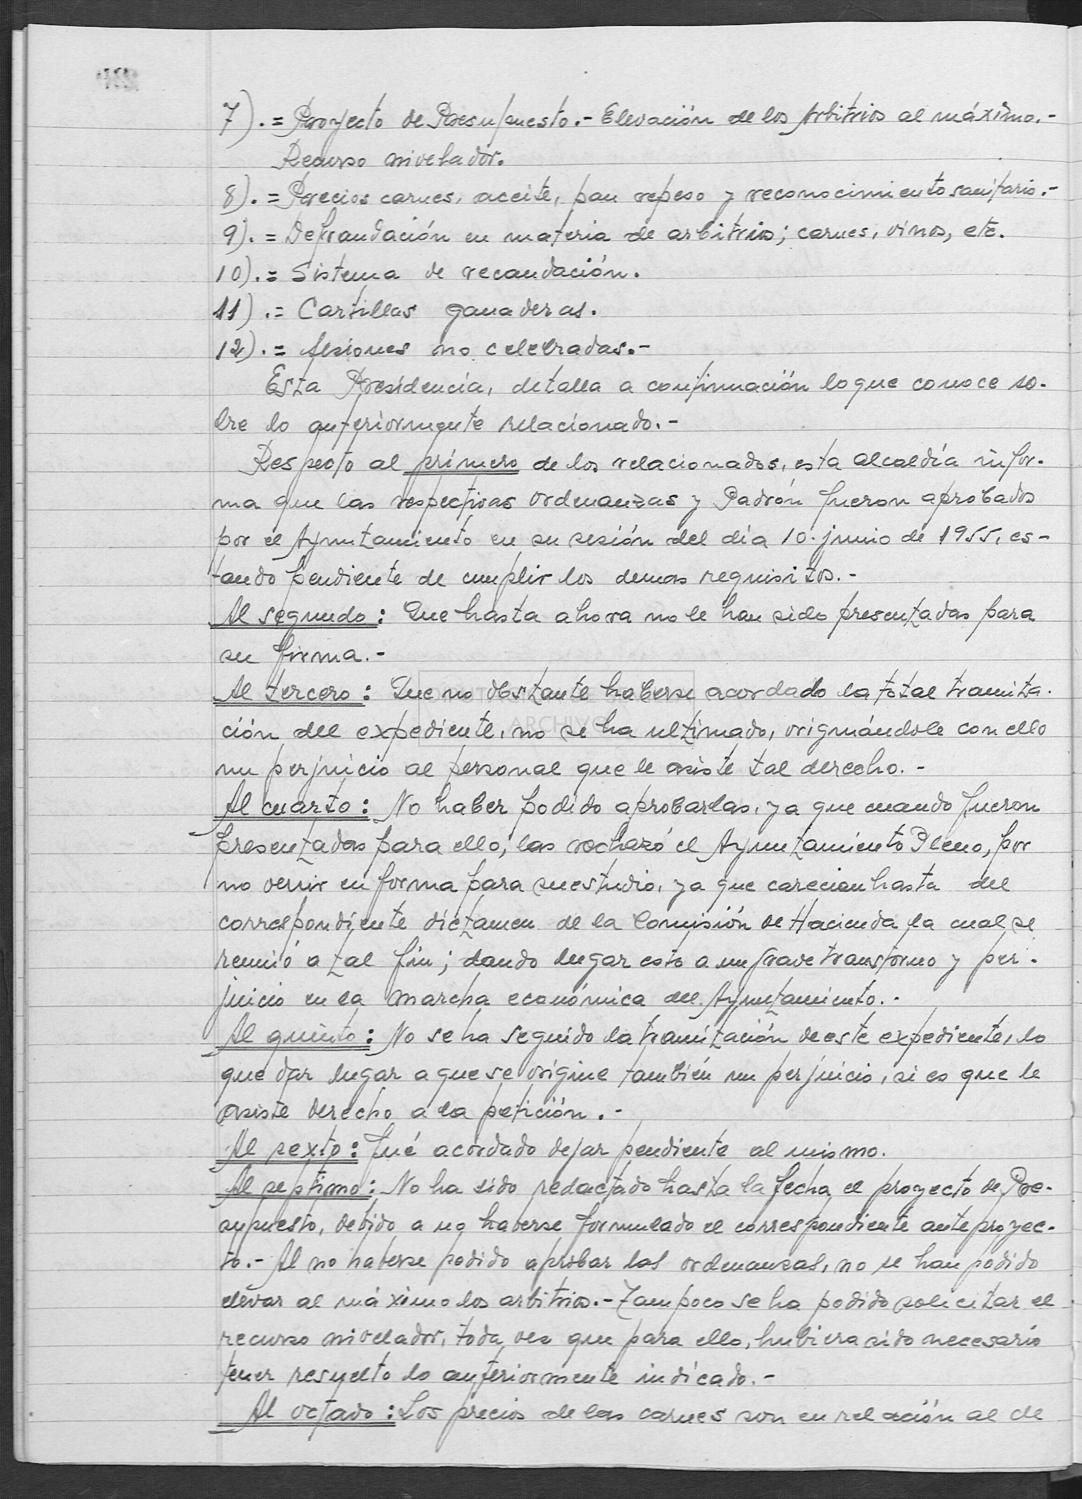 7).= Proyecto de Presupuesto.- Elevación de los Arbitrios al máximo.-
Recurso nivelador.
8).= Precios carnes, aceite, pan repeso y reconocimiento sanitario.-
9).= Defraudación en materia de arbitrios; carnes, vinos, etc.
10).= Sistema de recaudación.
11).= Cartillas ganaderas.
12).= Sesiones no celebradas.-
Esta Presidencia, detalla a continuación lo que conoce so-
bre lo anteriormente relacionado.-
Respecto al primero de los relacionados, esta alcaldía infor-
ma que las respectivas ordenanzas y Padrón fueron aprobados
por el Ayuntamiento en su sesión del día 10 junio de 1955, es-
tando pendiente de cumplir los demas requisitos.-
Al segundo: Que hasta ahora no le han sido presentadas para
su firma.-
Al tercero: Que no obstante haberse acordado la total tramita-
ción del expediente, no se ha ultimado, originándole con ello
un perjuicio al personal que le asiste tal derecho.-
Al cuarto: No haber podido aprobarlas, ya que cuando fueron
presentadas para ello, las rechazó el Ayuntamiento Pleno, por
no venir en forma para su estudio, ya que carecian hasta del
correspondiente dictamen de la Comisión de Hacienda la cual se
reunió a tal fin; dando lugar esto a un grave transtorno y per-
juicio en la marcha económica del Ayuntamiento.-
Al quinto: No se ha seguido la tramitación de este expediente, lo
que dar lugar a que se origine también un perjuicio, si es que le
asiste derecho a la petición.-
Al sexto: Fué acordado dejar pendiente el mismo.
Al septimo: No ha sido redactado hasta la fecha el proyecto de Pre-
supuesto, debido a no haberse formulado el correspondiente anteproyec-
to.- Al no haberse podido aprobar las ordenanzas, no se han podido
elevar al máximo los arbitrios.- Tampoco se ha podido solicitar el
recurso nivelador, toda vez que para ello, hubiera sido necesario
tener resuelto lo anteriormente indicado.-
Al octavo: Los precios de las carnes son en relación al de